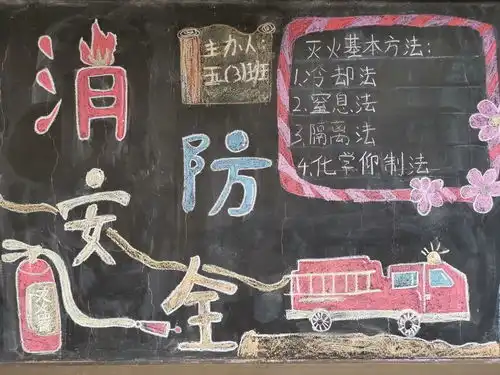 消
防
安
全
主办人:
五(3)班
灭火基本方法:
1.冷却法
2.窒息法
3.隔离法
4.化学仰制法